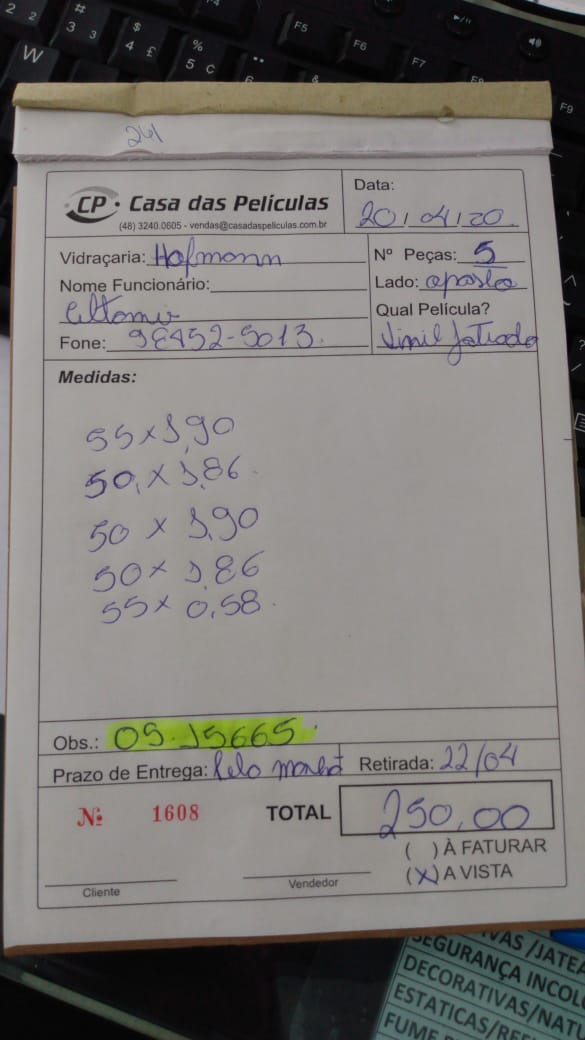 241
CP · Casa das Películas
(48) 3240.0605 - vendas@casadaspeliculas.com.br
Data:
20/04/20
Vidraçaria: Hofmann
Nº Peças: 5
Nome Funcionário:
Lado: oposto
Qual Película?
Fone: 98452-5013
Vinil Jatiado
Medidas:
55 x 1,90
50, x 1,86
50 x 1,90
50 x 1,86
55 x 0,58
Obs.: OS 15665
Prazo de Entrega: Pelo manhã
Retirada: 22/04
Nº 1608
TOTAL 250,00
( ) À FATURAR
(X) A VISTA
Cliente
Vendedor
SEGURANÇA INCOL
DECORATIVAS/NATU
ESTATICAS/REF
FUME